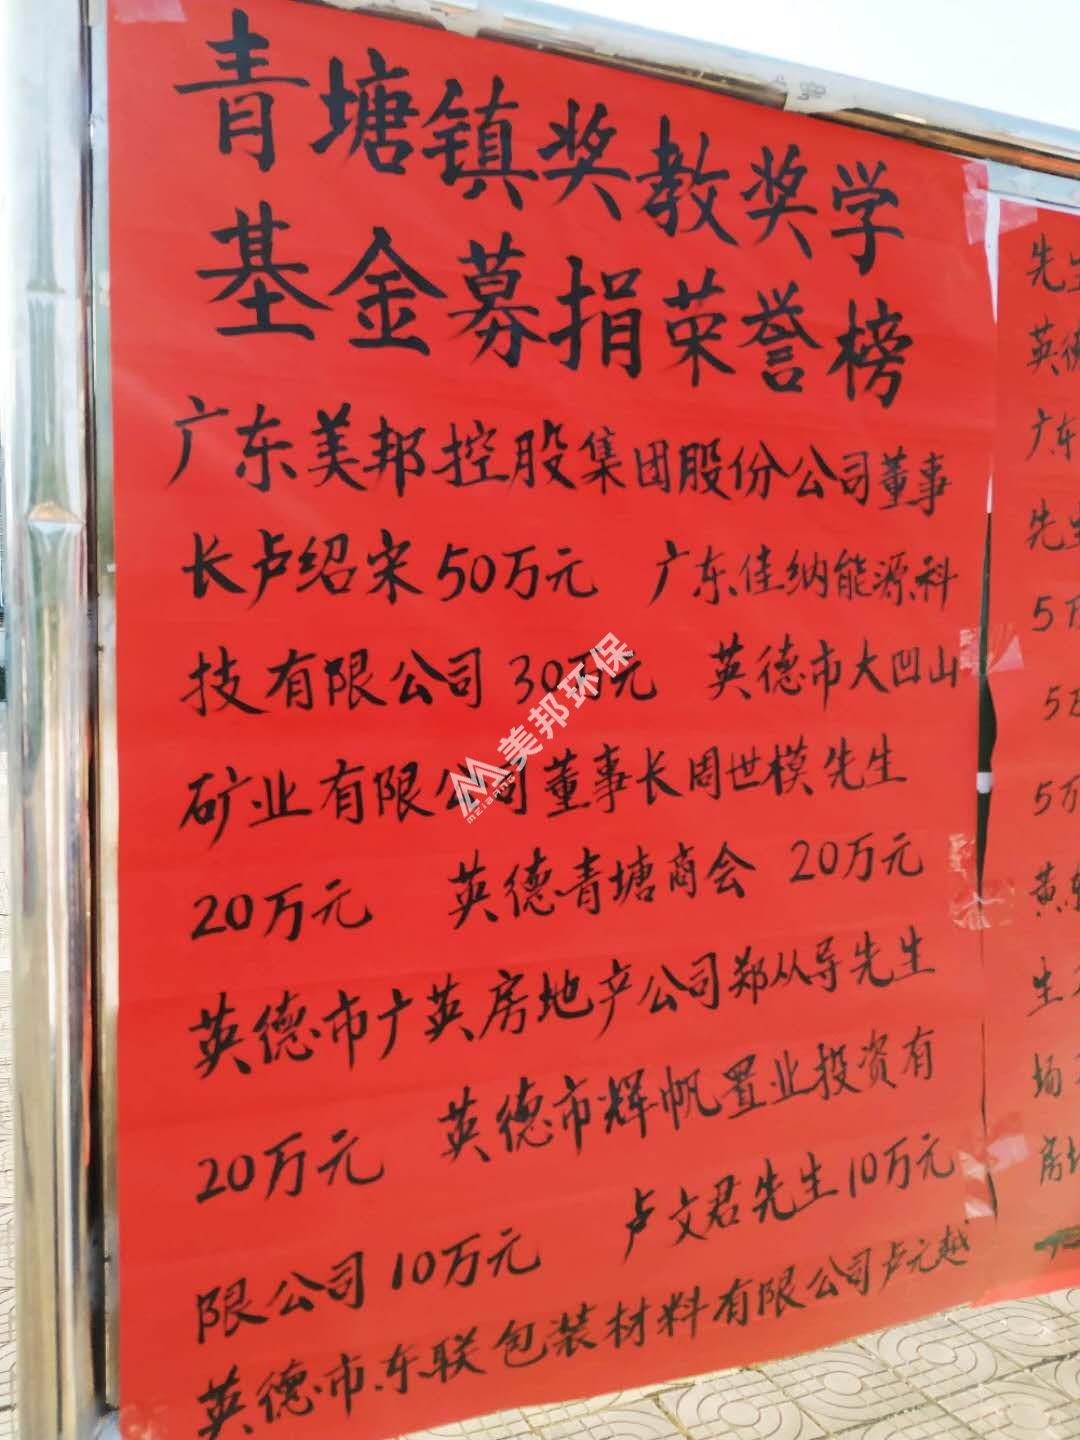 青塘镇奖教奖学
基金募捐荣誉榜
广东美邦控股集团股份公司董事
长卢绍宋50万元 广东佳纳能源科
技有限公司 30万元 英德市大凹山
矿业有限公司董事长周世模先生
20万元 英德青塘商会 20万元
英德市广英房地产公司郑从导先生
20万元 英德市辉帆置业投资有
限公司10万元 卢文君先生10万元
英德市东联包装材料有限公司卢元越
先生
英德
广东
先生
5万
5万
5万
黄东
生
场
房地
美邦环保
MEIBANG